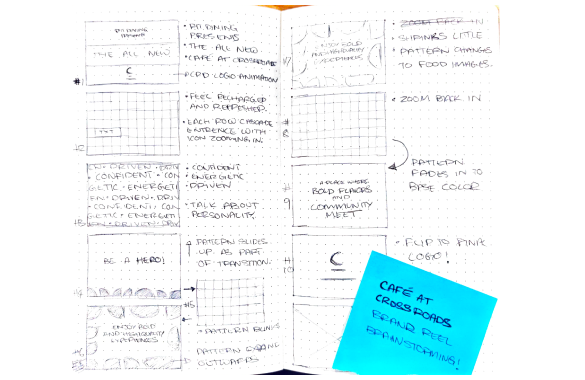 PRESENTS
THE ALL NEW
C
#1
• PRESENTS
• THE ALL NEW
• "CAFE AT CROSSROADS
LOGO ANIMATION
• FEEL RECHARGED
AND REFRESHED.
• EACH ROW CASCADE
ENTRENCE WITH
ICON ZOOMING IN.
EN • DRIVEN • DRIV
• CONFIDENT • CON
GETIC • ENERGETI
EN • DRIVEN • DRIV
• CONFIDENT • CON
GETIC • ENERGETI
EN • DRIVEN • DRIV
• CONFIDENT
ENERGETIC
DRIVEN
• TALK ABOUT
PERSONALITY.
BE A HERO!
PATTERN SLIDES
UP AS PART
OF TRANSITION.
#5
ENJOY BOLD
AND HIGH QUALITY
EXPERIENCES
• PATTERN
PATTERN
OUTWARDS
ENJOY BOLD
AND HIGH QUALITY
EXPERIENCES
• ZOOM IN
• SHRINKS LITTLE
• PATTERN CHANGES
TO FOOD IMAGES.
#
8
• ZOOM BACK IN
PATTERN
FADES IN TO
BASE COLOR
#
9
A PLACE WHERE
BOLD FLAVORS
AND
COMMUNITY
MEET
#
10
C
• FLIP TO
LOGO!
CAFÉ AT
CROSSROADS
BRAND REEL
BRAINSTORMING!